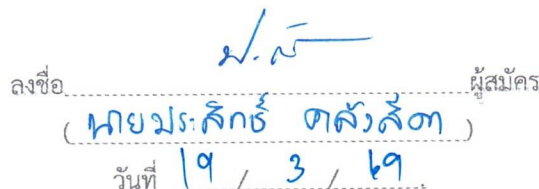 ลงชื่อ ป.ส ผู้สมัคร
(นายประสิทธิ์ คลังสีดา)
วันที่ 19 / 3 / 69